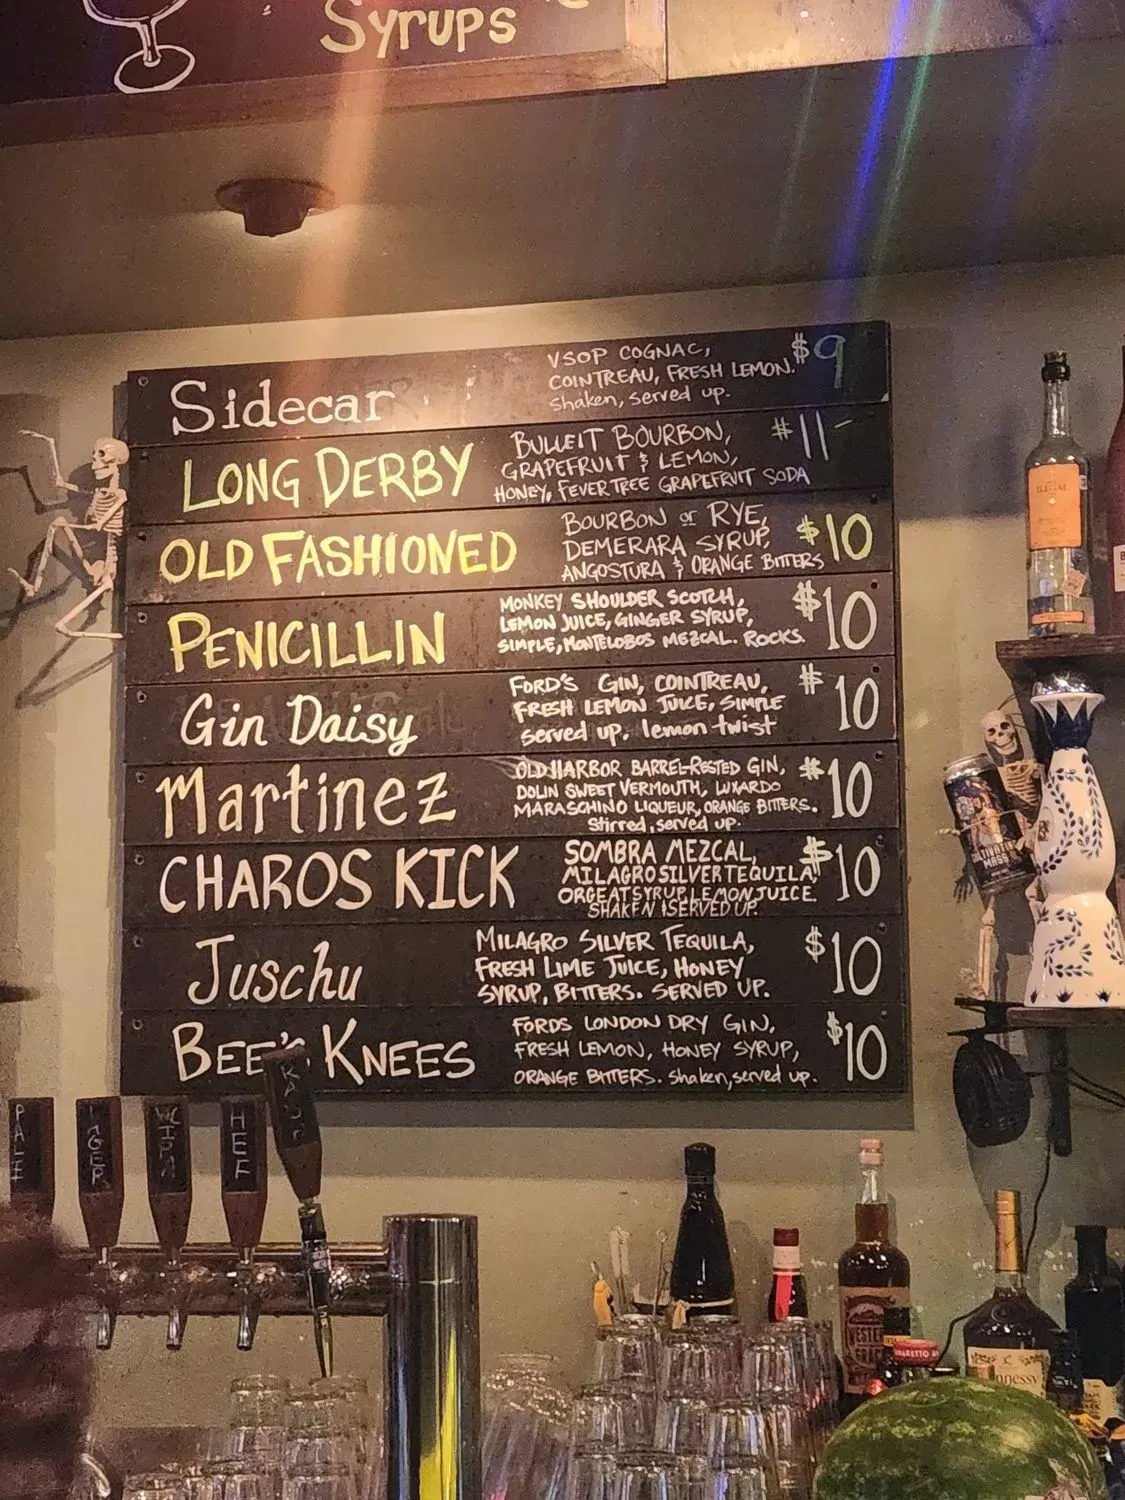 Syrups
Sidecar
VSOP COGNAC,
COINTREAU, FRESH LEMON.
shaken, served up.
$9
LONG DERBY
BULLEIT BOURBON,
GRAPEFRUIT & LEMON,
HONEY, FEVER TREE GRAPEFRUIT SODA
$11-
OLD FASHIONED
BOURBON or RYE,
DEMERARA SYRUP,
ANGOSTURA & ORANGE BITTERS
$10
PENICILLIN
MONKEY SHOULDER SCOTCH,
LEMON JUICE, GINGER SYRUP,
SIMPLE, MONTELOBOS MEZCAL. ROCKS.
$10
Gin Daisy
FORD'S GIN, COINTREAU,
FRESH LEMON JUICE, SIMPLE
served up. lemon twist
$10
Martinez
OLD HARBOR BARREL-RESTED GIN,
DOLIN SWEET VERMOUTH, LUXARDO
MARASCHINO LIQUEUR, ORANGE BITTERS.
Stirred, served up.
$10
CHAROS KICK
SOMBRA MEZCAL,
MILAGRO SILVER TEQUILA,
ORGEAT SYRUP, LEMON JUICE
SHAKEN & SERVED UP.
$10
Juschu
MILAGRO SILVER TEQUILA,
FRESH LIME JUICE, HONEY
SYRUP, BITTERS. SERVED UP.
$10
BEE'S KNEES
FORDS LONDON DRY GIN,
FRESH LEMON, HONEY SYRUP,
ORANGE BITTERS. shaken, served up.
$10
PALE
LAGER
HEF
ILEGAL
AMARETTO
Hennessy